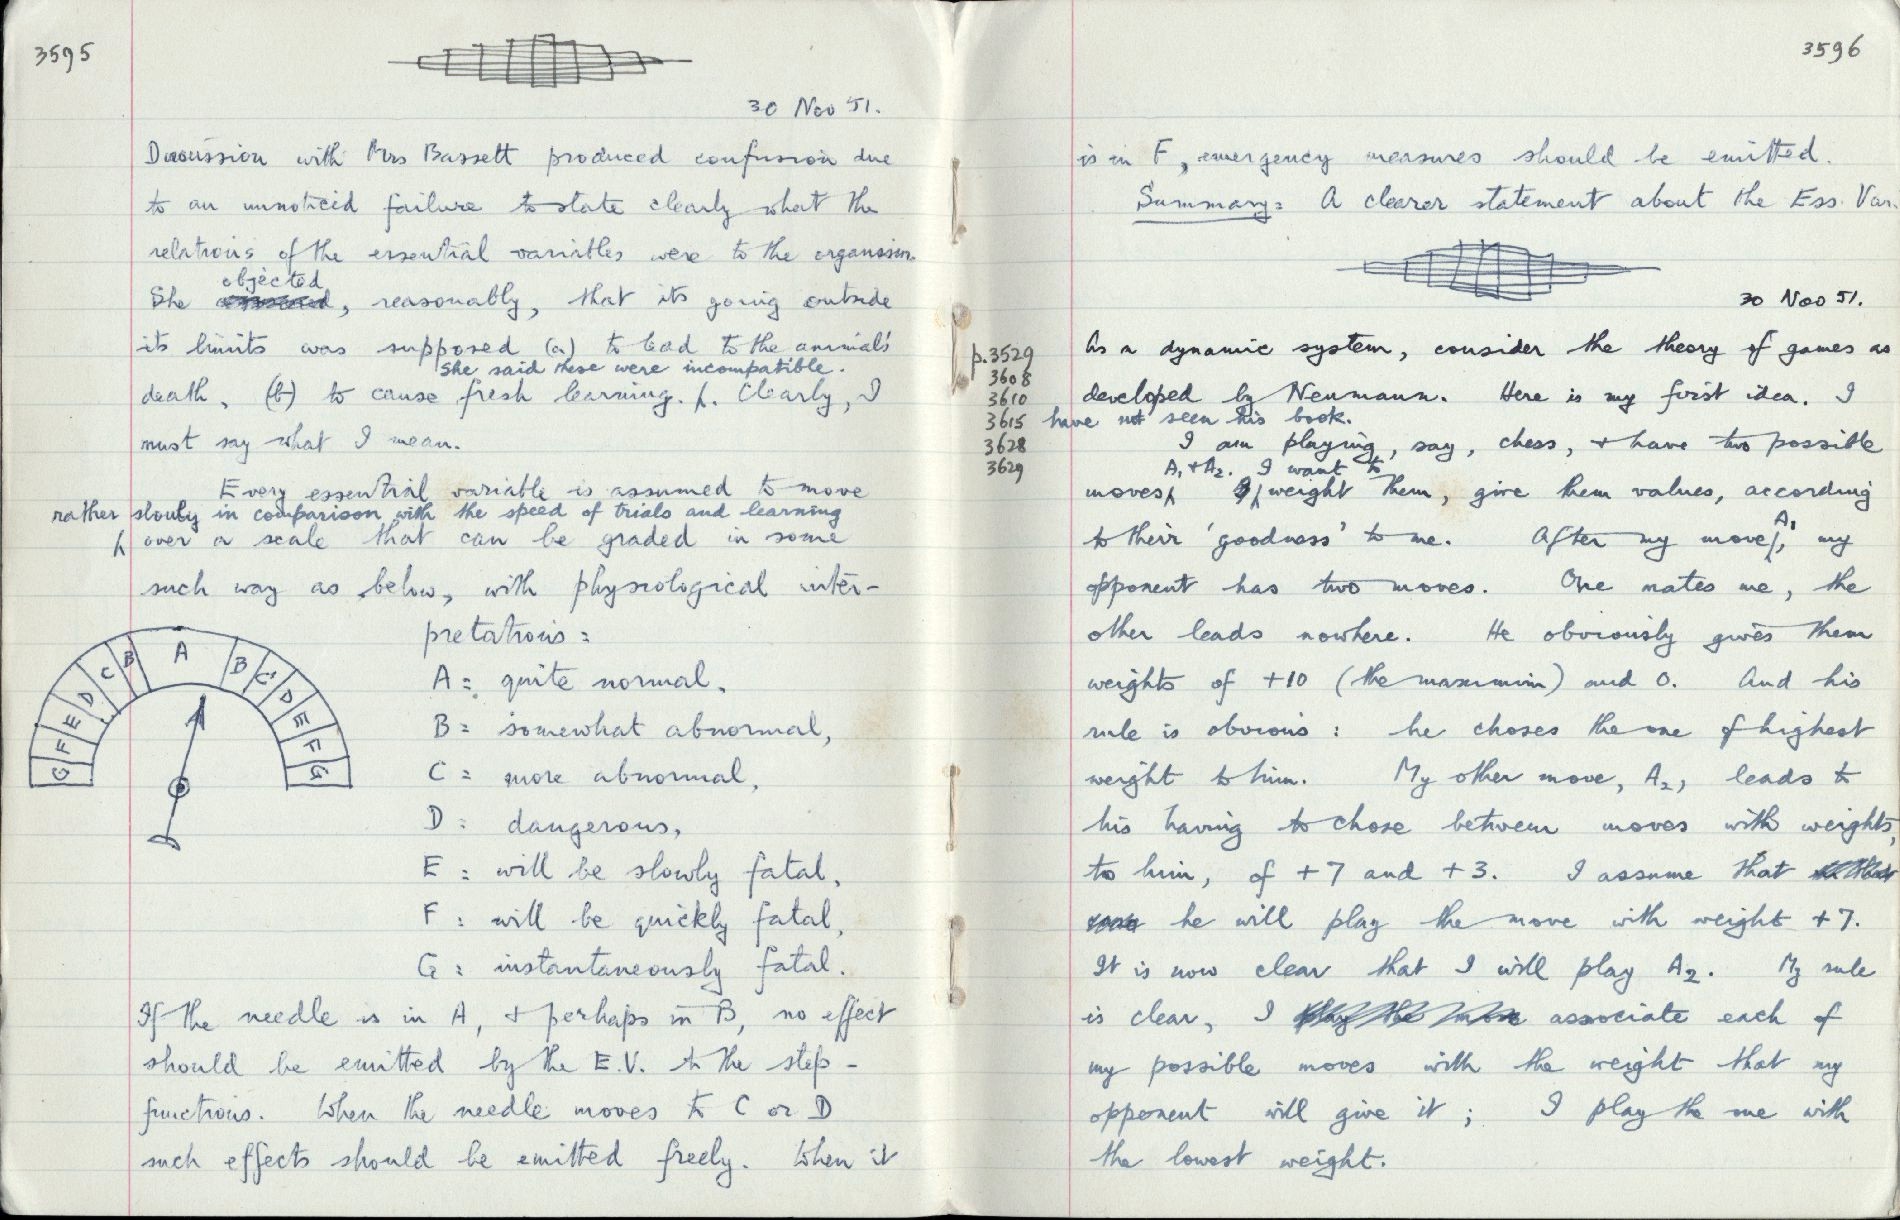 3595
30 Nov 51.
Discussion with Mrs Bassett produced confusion due
to an unnoticed failure to state clearly what the
relations of the essential variables were to the organism.
objected
She , reasonably, that its going outside
its limits was supposed (a) to lead to the animal's
She said these were incompatible.
death, (b) to cause fresh learning. Clearly, I
must say what I mean.
Every essential variable is assumed to move
rather slowly in comparison with the speed of trials and learning
over a scale that can be graded in some
such way as below, with physiological inter-
pretations:
G F E D C B A B C D E F G
A: quite normal.
B: somewhat abnormal,
C: more abnormal,
D: dangerous,
E: will be slowly fatal,
F: will be quickly fatal,
G: instantaneously fatal.
If the needle is in A, + perhaps in B, no effect
should be emitted by the E.V. to the step-
functions. When the needle moves to C or D
such effects should be emitted freely. When it
3596
is in F, emergency measures should be emitted.
Summary: A clearer statement about the Ess. Var.
30 Nov 51.
As a dynamic system, consider the theory of games as
p.3529
3608
3610
3615
3628
3629
developed by Neumann. Here is my first idea. I
have not seen his book.
I am playing, say, chess, + have two possible
A₁ + A₂. I want to
moves weight them, give them values, according
to their 'goodness' to me. After my move, A₁, my
opponent has two moves. One mates me, the
other leads nowhere. He obviously gives them
weights of +10 (the maximum) and 0. And his
rule is obvious: he choses the one of highest
weight to him. My other move, A₂, leads to
his having to chose between moves with weights,
to him, of +7 and +3. I assume that
he will play the move with weight +7.
It is now clear that I will play A₂. My rule
is clear, I play the move associate each of
my possible moves with the weight that my
opponent will give it; I play the one with
the lowest weight.